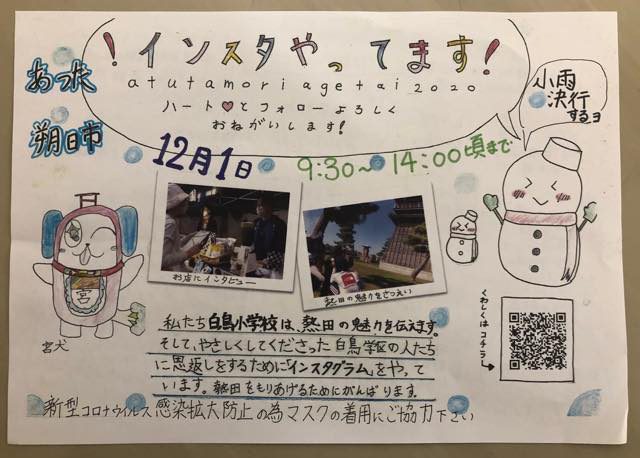 ！インスタやってます！
atutamoriagetai2020
ハート♥とフォローよろしく
おねがいします！
あつた
朔日市
小雨
決行
するヨ
12月1日
9:30～14:00頃まで
お店にインタビュー
熱田の魅力をさつえい
宮
宮犬
くわしくはコチラ
私たち白鳥小学校は、熱田の魅力を伝えます。
そして、やさしくしてくださった白鳥学区の人たち
に恩返しをするために「インスタグラム」をやって
います。熱田をもりあげるためにがんばります。
新型コロナウイルス感染拡大防止の為マスクの着用にご協力下さい